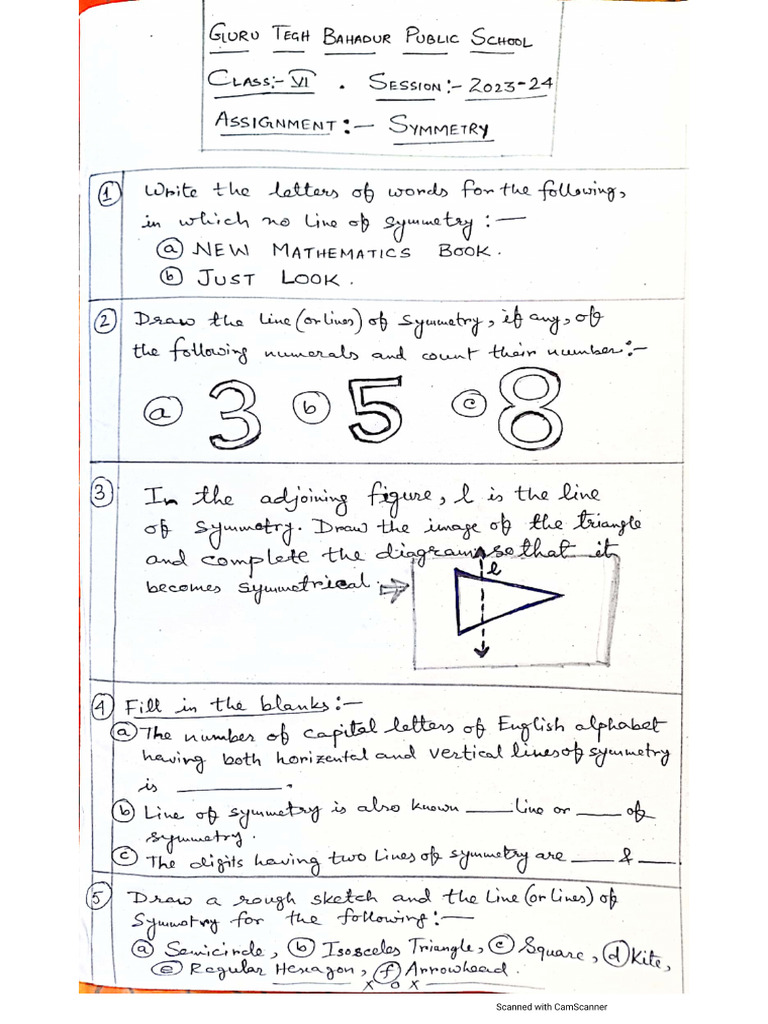 GURU TEGH BAHADUR PUBLIC SCHOOL
CLASS:- VI . SESSION:- 2023-24
ASSIGNMENT:- SYMMETRY
① Write the letters of words for the following,
in which no line of symmetry:-
ⓐ NEW MATHEMATICS BOOK.
ⓑ JUST LOOK.
② Draw the line (or lines) of symmetry, if any, of
the following numerals and count their number:-
ⓐ 3 ⓑ 5 ⓒ 8
③ In the adjoining figure, l is the line
of symmetry. Draw the image of the triangle
and complete the diagram so that it
becomes symmetrical.
l
④ Fill in the blanks:-
ⓐ The number of capital letters of English alphabet
having both horizental and vertical lines of symmetry
is ________.
ⓑ Line of symmetry is also known ____ line or ____ of
symmetry.
ⓒ The digits having two lines of symmetry are ____ & ____.
⑤ Draw a rough sketch and the line (or lines) of
Symmotry for the following:-
ⓐ Semicircle, ⓑ Isosceles Triangle, ⓒ Square, ⓓ Kite,
ⓔ Regular Hexagon, ⓕ Arrowhead.
x o x
Scanned with CamScanner